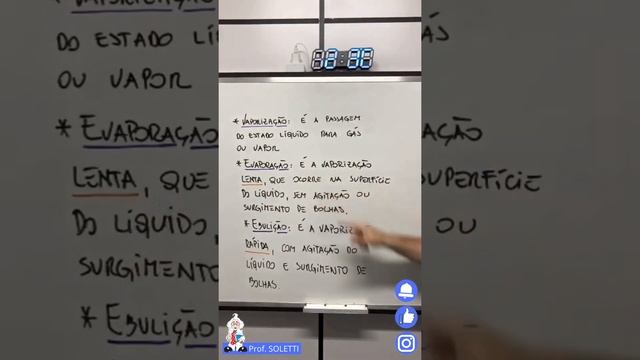 * VAPORIZAÇÃO: É A PASSAGEM
DO ESTADO LÍQUIDO PARA GÁS
OU VAPOR
* EVAPORAÇÃO: É A VAPORIZAÇÃO
LENTA, QUE OCORRE NA SUPERFÍCIE
DO LÍQUIDO, SEM AGITAÇÃO OU
SURGIMENTO DE BOLHAS.
* EBULIÇÃO: É A
RÁPIDA, COM AGITAÇÃO DO
LÍQUIDO E SURGIMENTO DE
BOLHAS.
Prof. SOLETTI